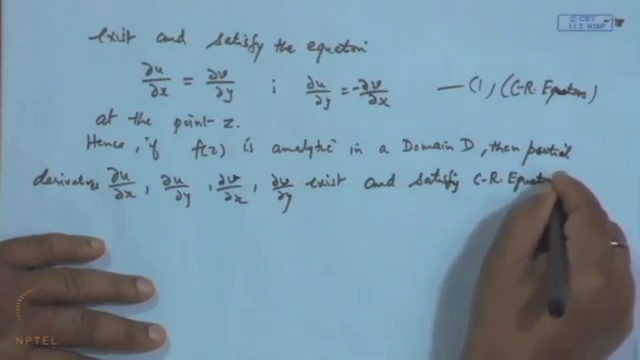 © CET
I.I.T. KGP
exist and satisfy the equation
∂u/∂x = ∂v/∂y ; ∂u/∂y = -∂v/∂x — (1) (C-R. Equations)
at the point z.
Hence, if f(z) is analytic in a Domain D, then partial
derivatives ∂u/∂x, ∂u/∂y, ∂v/∂x, ∂v/∂y exist and satisfy C-R. Equation
NPTEL